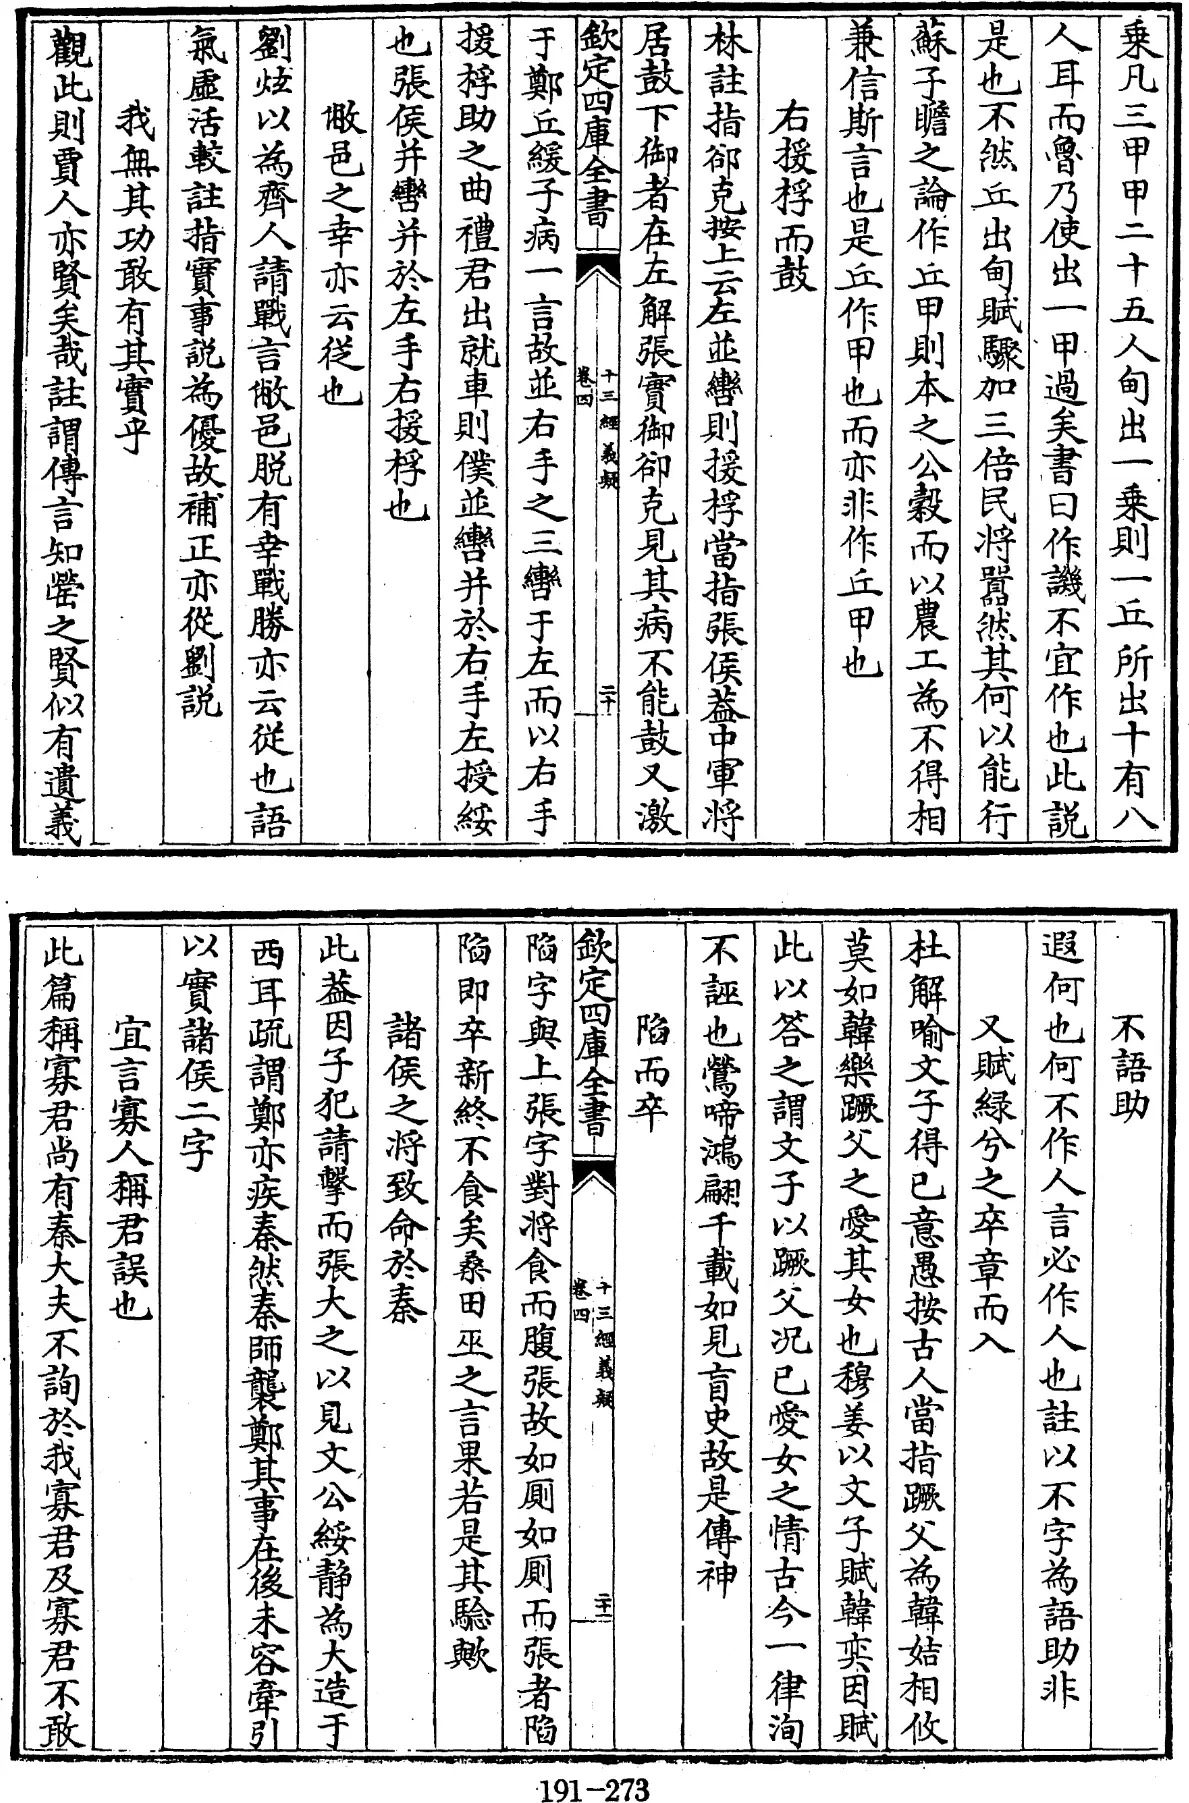 乗凡三甲甲二十五人甸出一乗則一丘所出十有八
人耳而魯乃使出一甲過矣書曰作譏不宜作也此説
是也不然丘出甸賦驟加三倍民將嚣然其何以能行
蘇子瞻之論作丘甲則本之公穀而以農工為不得相
兼信斯言也是丘作甲也而亦非作丘甲也
右援桴而鼓
林註指郤克按上云左並轡則援桴當指張侯葢中軍将
居鼓下御者在左解張實御郤克見其病不能鼓又激
欽定四庫全書
十三經義疑
卷四
二十
于鄭丘緩子病一言故並右手之三轡于左而以右手
援桴助之曲禮君出就車則僕並轡并於右手左授綏
也張侯并轡并於左手右援桴也
敝邑之幸亦云從也
劉炫以為齊人請戰言敝邑脱有幸戰勝亦云從也語
氣虚活較註指實事説為優故補正亦從劉説
我無其功敢有其實乎
觀此則賈人亦賢矣哉註謂傳言知罃之賢似有遺義
不語助
遐何也何不作人言必作人也註以不字為語助非
又賦緑兮之卒章而入
杜解喻文子得已意愚按古人當指蹶父為韓姞相攸
莫如韓樂蹶父之愛其女也穆姜以文子賦韓奕因賦
此以答之謂文子以蹶父况已愛女之情古今一律洵
不誣也鶯啼鴻翩千載如見盲史故是傳神
陷而卒
欽定四庫全書
十三經義疑
卷四
二十一
陷字與上張字對將食而腹張故如厠如厠而張者陷
陷即卒新終不食矣桑田巫之言果若是其驗歟
諸侯之将致命於秦
此葢因子犯請擊而張大之以見文公綏静為大造于
西耳疏謂鄭亦疾秦然秦師襲鄭其事在後未容牽引
以實諸侯二字
宜言寡人稱君誤也
此篇稱寡君尚有秦大夫不詢於我寡君及寡君不敢
191-273